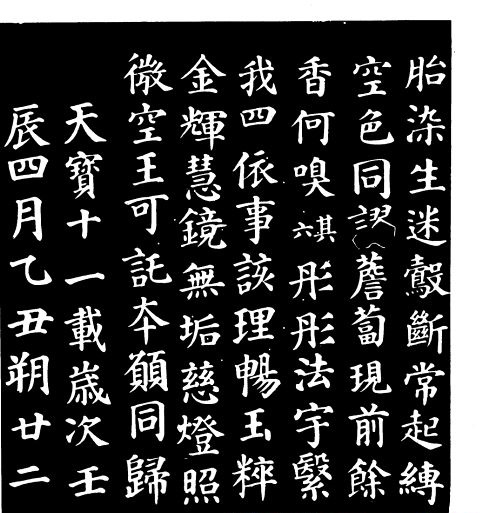 胎染生迷鷇斷常起縛
空色同謬薝蔔現前餘
香何嗅其六彤彤法宇繄
我四依事該理暢玉粹
金輝慧鏡無垢慈燈照
微空王可託夲願同歸
天寶十一載歲次壬
辰四月乙丑朔廿二